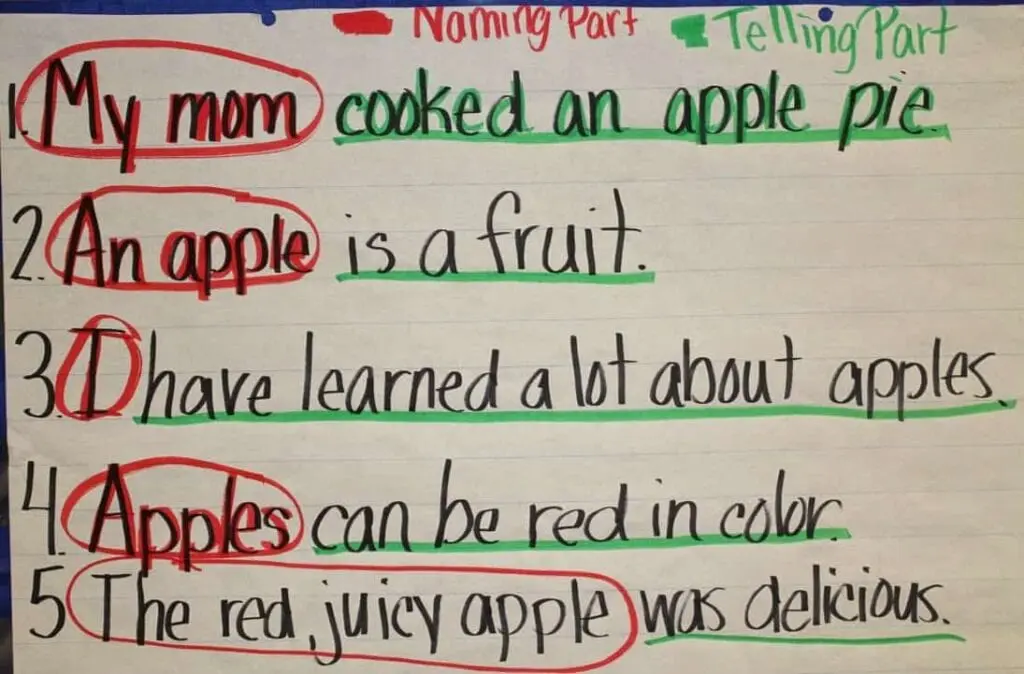 Naming Part Telling Part
1. My mom cooked an apple pie.
2. An apple is a fruit.
3. I have learned a lot about apples.
4. Apples can be red in color.
5 The red, juicy apple was delicious.